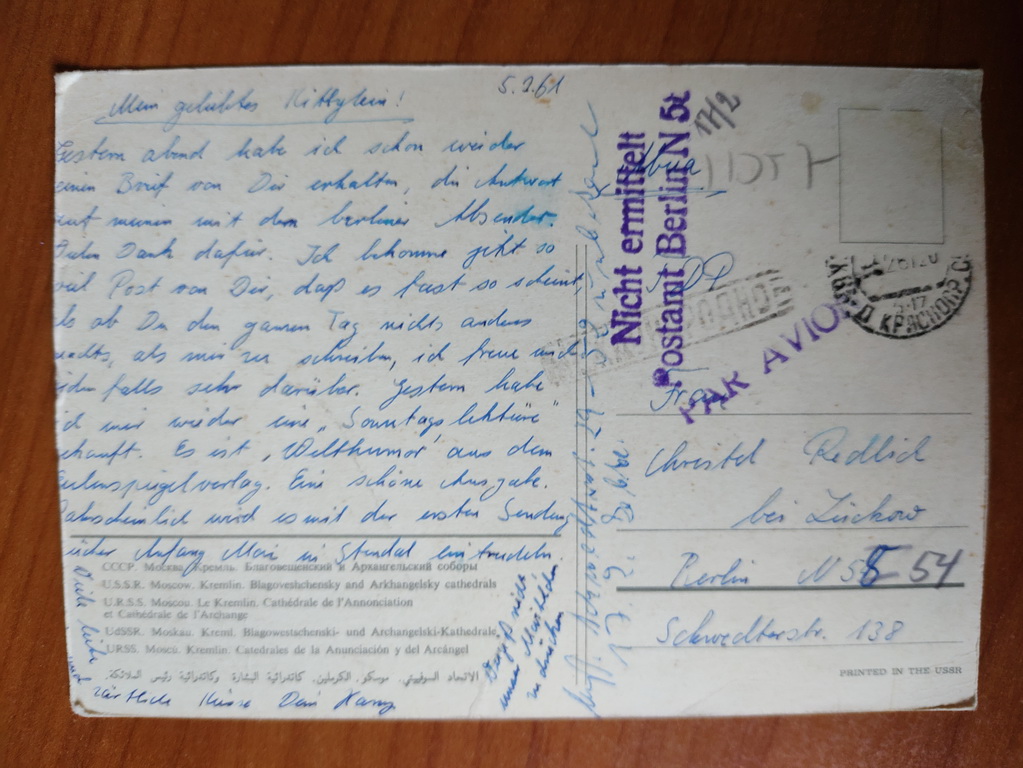 5.2.61
Mein geliebtes Kittylein!
Gestern abend habe ich schon wieder
einen Brief von Dir erhalten, die Antwort
auf meinen mit dem berliner Absender.
Vielen Dank dafür. Ich bekomme jetzt so
viel Post von Dir, daß es fast so scheint,
als ob Du den ganzen Tag nichts anders
machts, als mir zu schreiben, ich freue mich
jedenfalls sehr darüber. Gestern habe
ich mir wieder eine „Sonntagslektüre"
gekauft. Es ist „Welthumor" aus dem
Eulenspiegelverlag. Eine schöne Ausgabe.
Wahrscheinlich wird es mit der ersten Sendung
Anfang Mai in Stendal eintrudeln.
Vergiß nicht
unser Mädchen
zu drücken
Viele liebe
und
zärtliche Küsse Dein
СССР. Москва. Кремль. Благовещенский и Архангельский соборы
U.S.S.R. Moscow. Kremlin. Blagoveshchensky and Arkhangelsky cathedrals
U.R.S.S. Moscou. Le Kremlin. Cathédrale de l'Annonciation
et Cathédrale de l'Archange
UdSSR. Moskau. Kreml. Blagowestschenski- und Archangelski-Kathedrale
URSS. Moscú. Kremlin. Catedrales de la Anunciación y del Arcángel
الاتحاد السوفييتي. موسكو. الكرملين. كاتدرائية البشارة وكاتدرائية رئيس الملائكة.
Nicht ermittelt
Postamt Berlin N 54
17/2
PAR AVION
DDR
Frau
Christel Redlich
bei Zückow
Berlin N 58 54
Schwedterstr. 138
PRINTED IN THE USSR